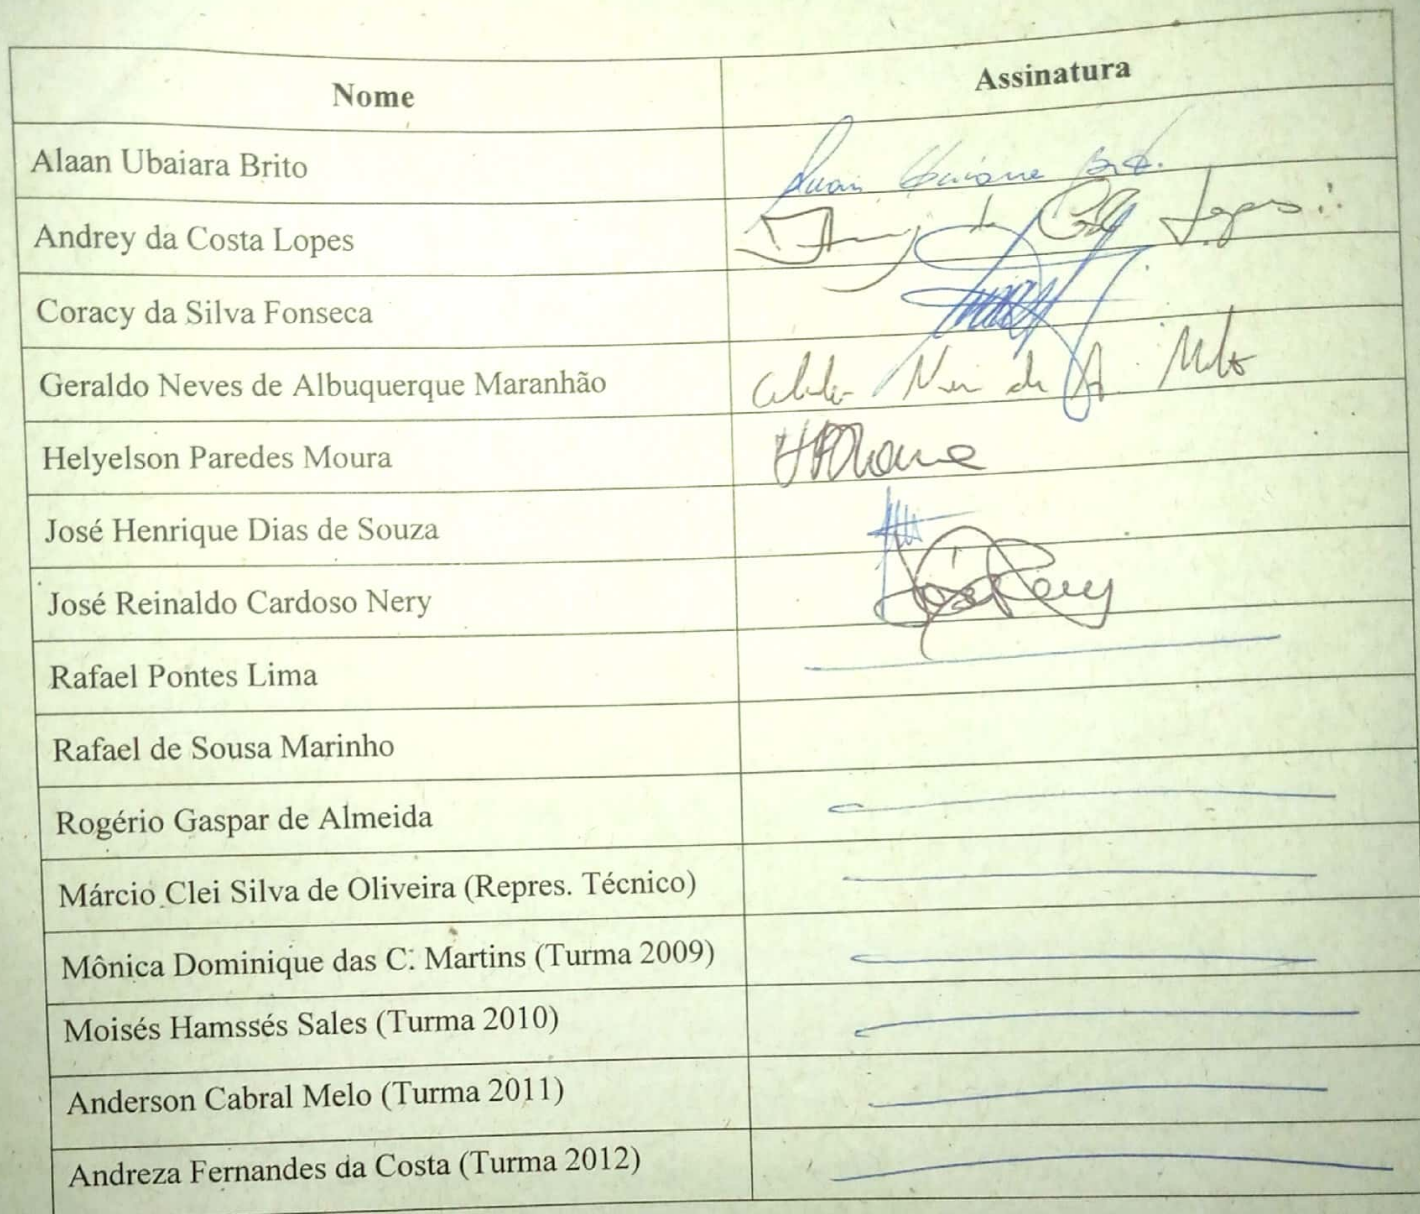 Nome Assinatura
Alaan Ubaiara Brito
Andrey da Costa Lopes
Coracy da Silva Fonseca
Geraldo Neves de Albuquerque Maranhão
Helyelson Paredes Moura
José Henrique Dias de Souza
José Reinaldo Cardoso Nery
Rafael Pontes Lima
Rafael de Sousa Marinho
Rogério Gaspar de Almeida
Márcio Clei Silva de Oliveira (Repres. Técnico)
Mônica Dominique das C. Martins (Turma 2009)
Moisés Hamssés Sales (Turma 2010)
Anderson Cabral Melo (Turma 2011)
Andreza Fernandes da Costa (Turma 2012)